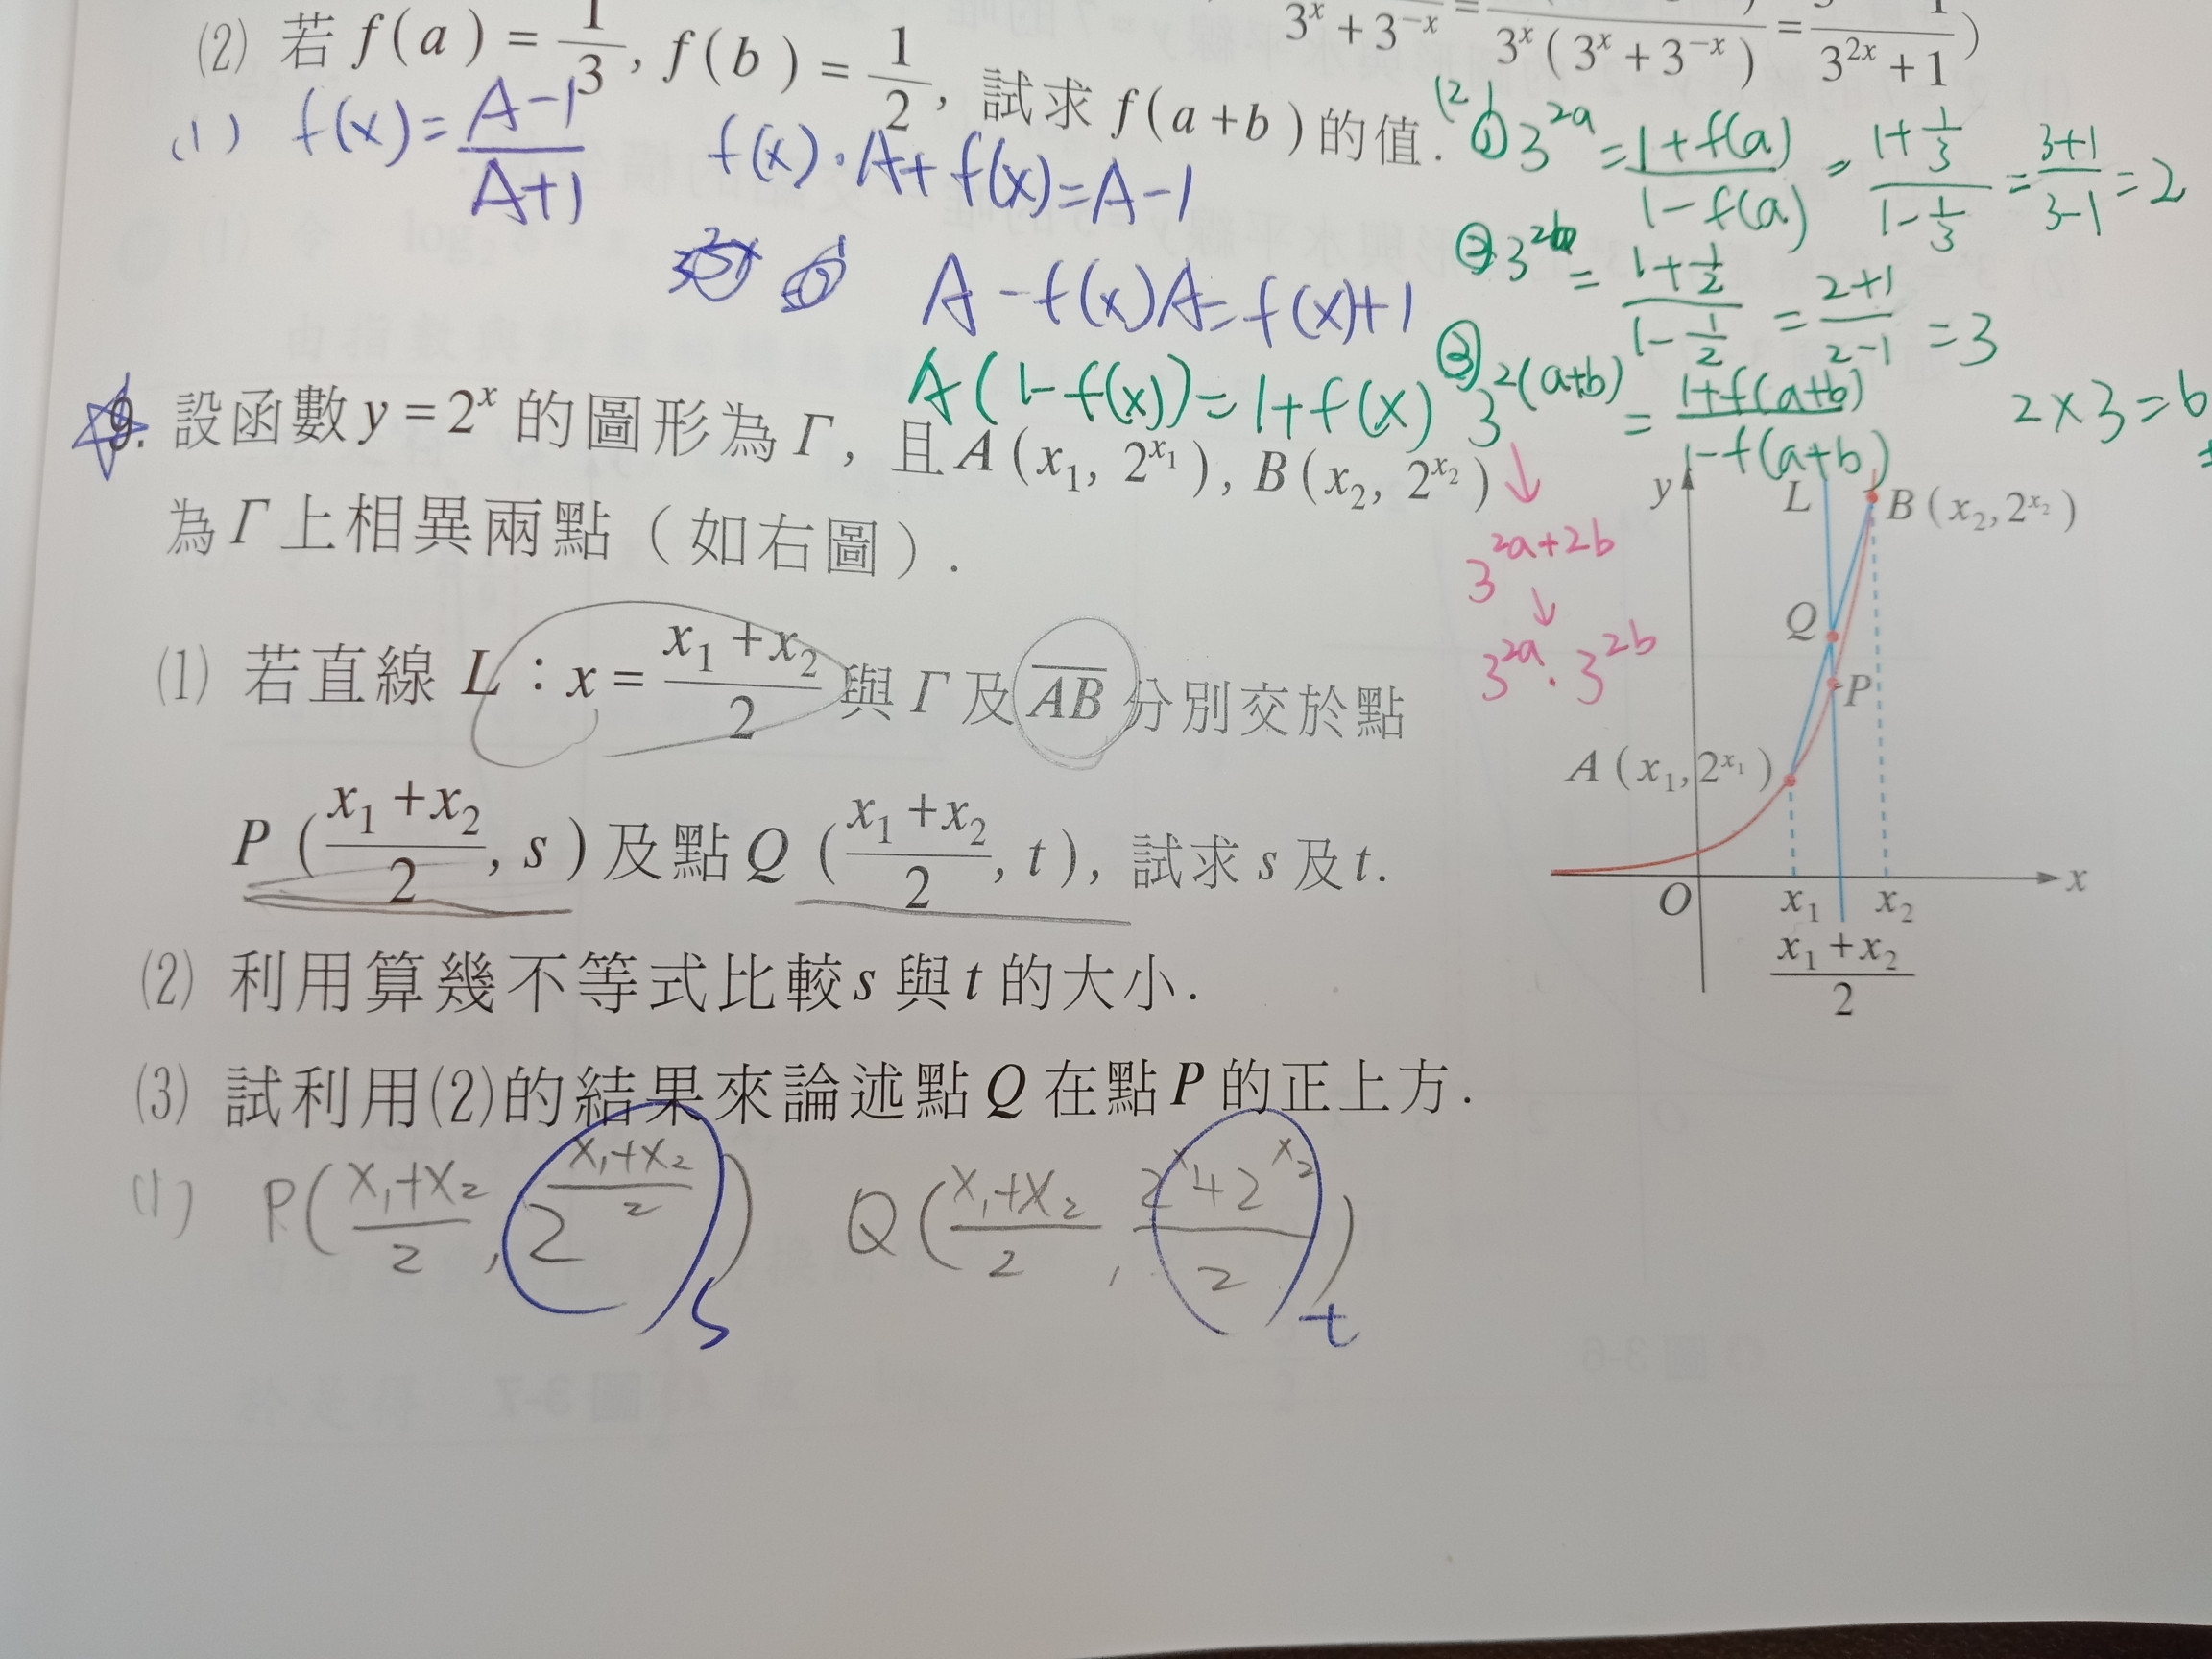 (2) 若 f(a) = 1/3, f(b) = 1/2, 試求 f(a+b) 的值.
3^x + 3^{-x} = 3^x(3^x + 3^{-x}) = 3^{2x} + 1 )
(1) f(x) = (A-1)/(A+1)
f(x)·A + f(x) = A-1
A - f(x)A = f(x)+1
A(1-f(x)) = 1+f(x)
(2)
① 3^{2a} = (1+f(a))/(1-f(a)) = (1+1/3)/(1-1/3) = (3+1)/(3-1) = 2
② 3^{2b} = (1+1/2)/(1-1/2) = (2+1)/(2-1) = 3
③ 3^{2(a+b)} = (1+f(a+b))/(1-f(a+b))
2×3=6
↓
3^{2a+2b}
↓
3^{2a}·3^{2b}
9. 設函數 y = 2^x 的圖形為 Γ, 且 A(x₁, 2^{x₁}), B(x₂, 2^{x₂})
為 Γ 上相異兩點（如右圖）.
(1) 若直線 L：x = (x₁+x₂)/2 與 Γ 及 \overline{AB} 分別交於點
P((x₁+x₂)/2, s) 及點 Q((x₁+x₂)/2, t), 試求 s 及 t.
(2) 利用算幾不等式比較 s 與 t 的大小.
(3) 試利用(2)的結果來論述點 Q 在點 P 的正上方.
y
L
B(x₂, 2^{x₂})
Q
P
A(x₁, 2^{x₁})
O
x₁
x₂
x
(x₁+x₂)/2
(1) P((x₁+x₂)/2, 2^{(x₁+x₂)/2}) Q((x₁+x₂)/2, (2^{x₁}+2^{x₂})/2)
s
t